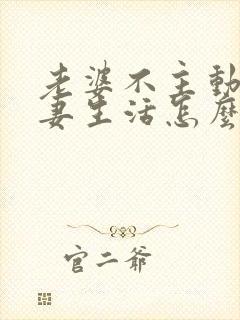 老婆不主動
妻生活怎麼
官二爺